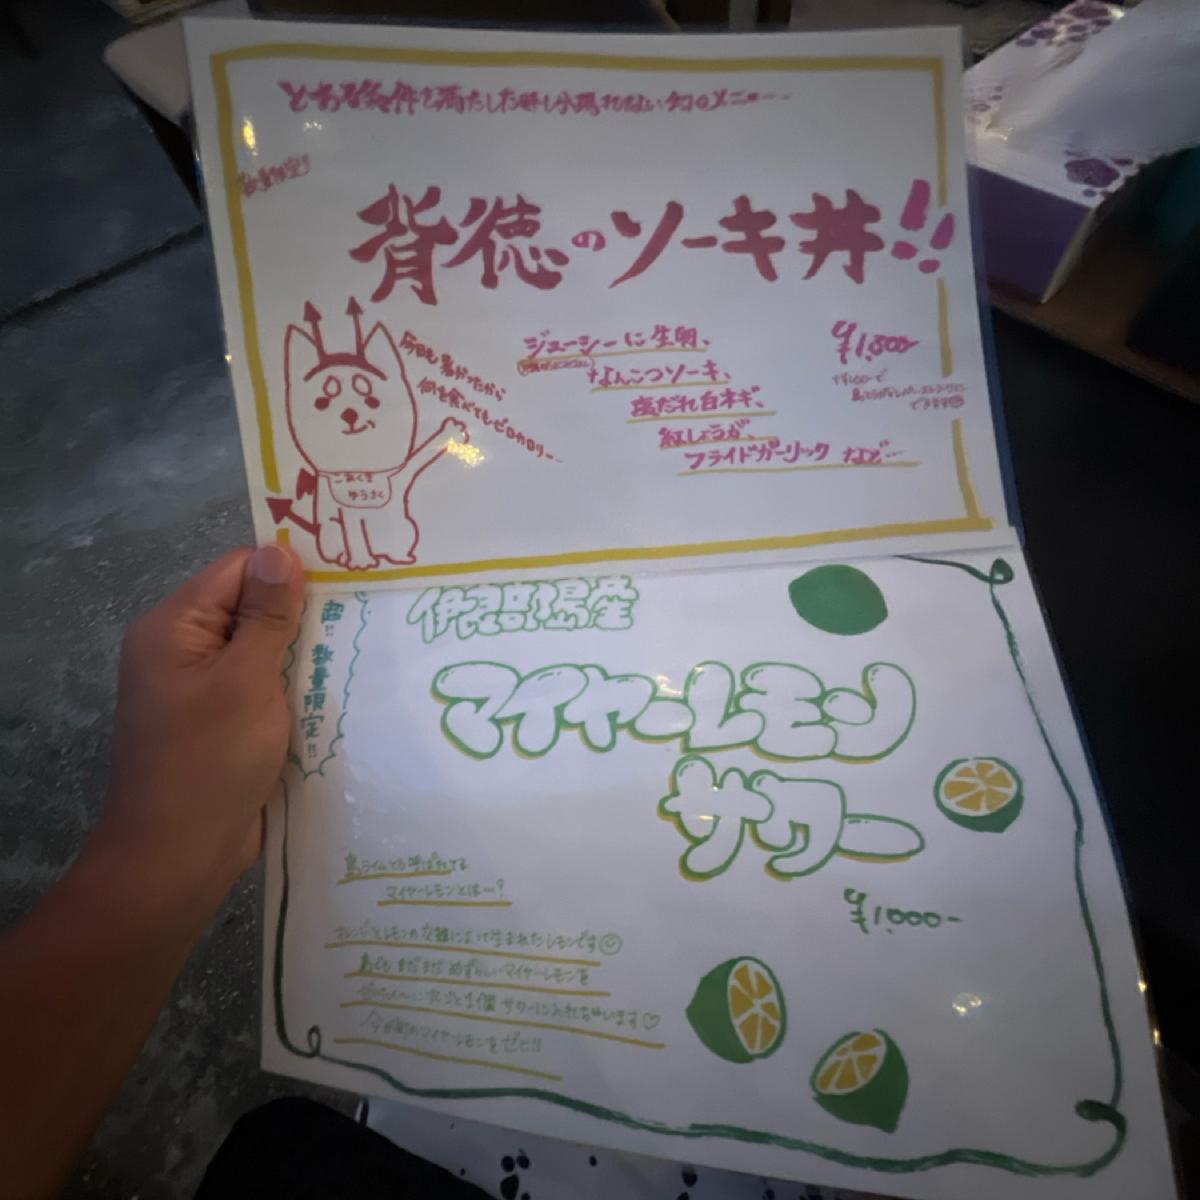 とある条件を満たした時しか現れない幻のメニュー…
数量限定!!
背徳のソーキ丼!!
今日も暑かったから
何を食べてもゼロカロリー…
ジューシーに生卵、
なんこつソーキ、
塩だれ白ネギ、
紅しょうが、
フライドガーリック など…
¥1,800-
+¥100で
できます
こあくま
ゆうさく
超!! 数量限定!!
伊良部島産
マイヤーレモン
サワー
¥1,000-
島ライムとも呼ばれてる
マイヤーレモンとは…?
オレンジとレモンの交雑によって生まれたレモンです☺
島でもまだまだめずらしいマイヤーレモンを
ぜいたくに丸ごと1個サワーに入れちゃいます♡
今が旬のマイヤーレモンをぜひ!!